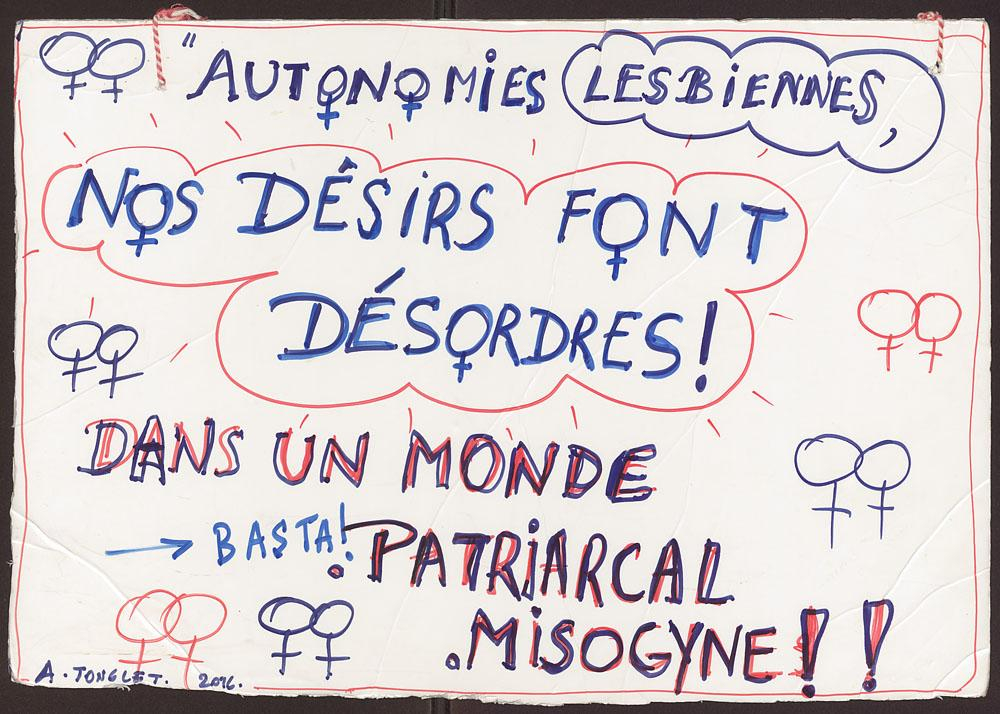 "AUTONOMIES LESBIENNES,
NOS DÉSIRS FONT
DÉSORDRES!
DANS UN MONDE
→ BASTA! .PATRIARCAL
.MISOGYNE!!
A. TONGLET. 2016.